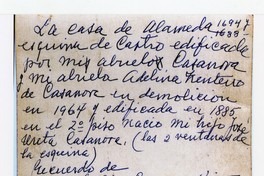 La casa de Alameda 1694 y
1688
esquina de Castro edificada
por mis abuelos Casanova
y mi abuela Adelina Zenteno
de Casanova en demolicion
en 1964 y edificada en 1885
en el 2º piso nació mi hijo José
Ureta Casanova. (las 2 ventanas de
la esquina)
Recuerdo de